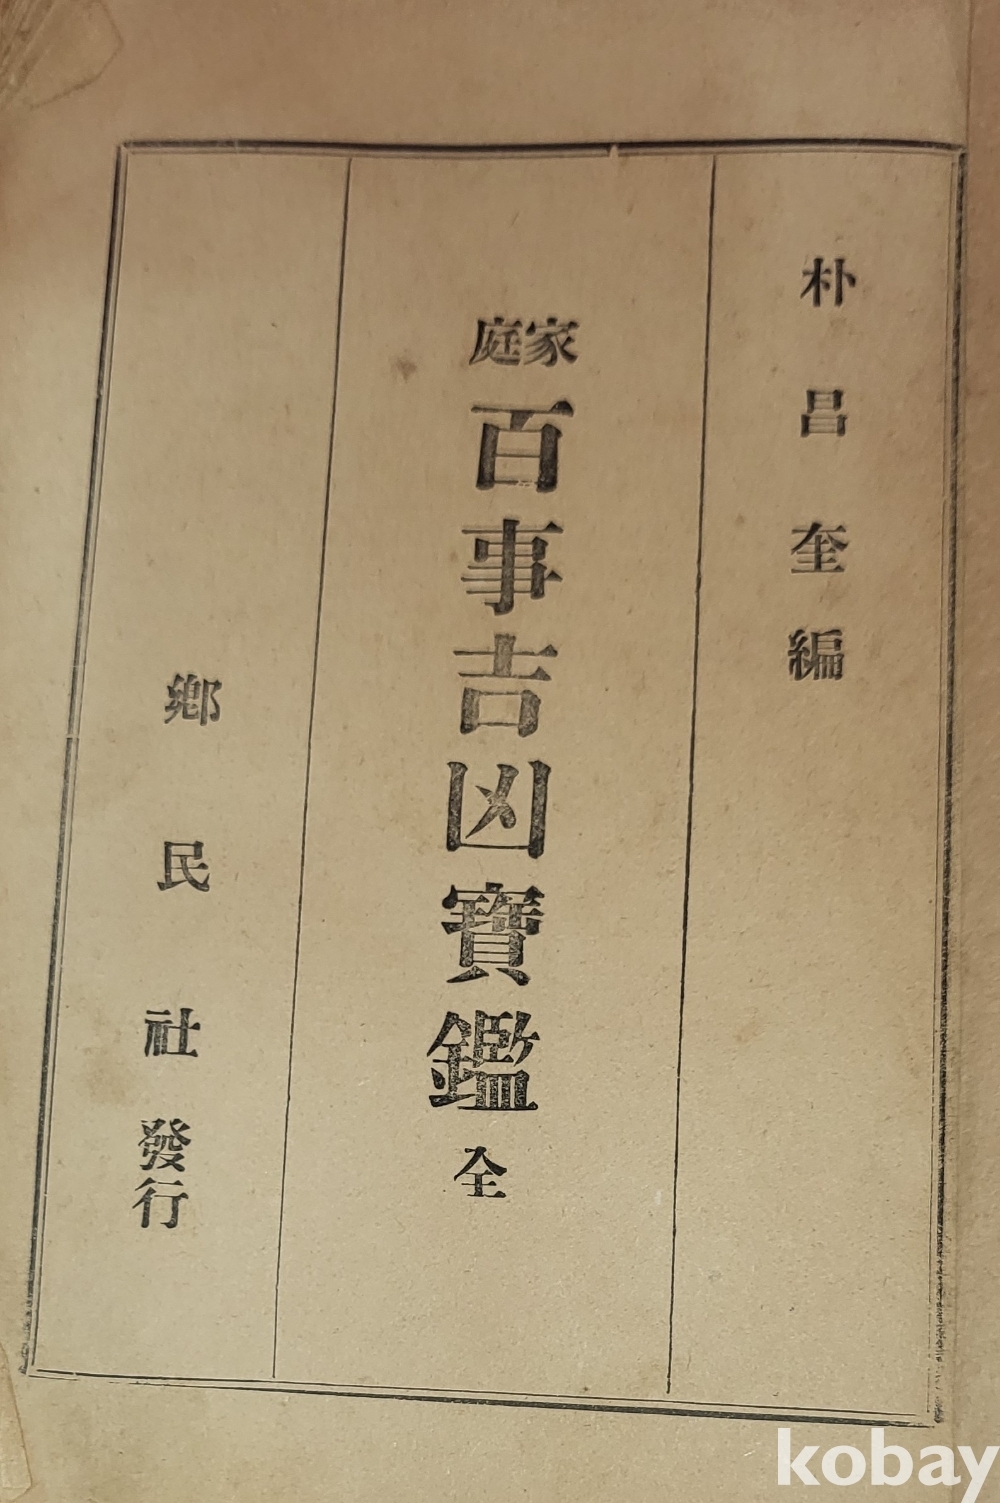 朴昌奎編
家庭
百事吉凶寶鑑 全
鄕民社發行
kobay